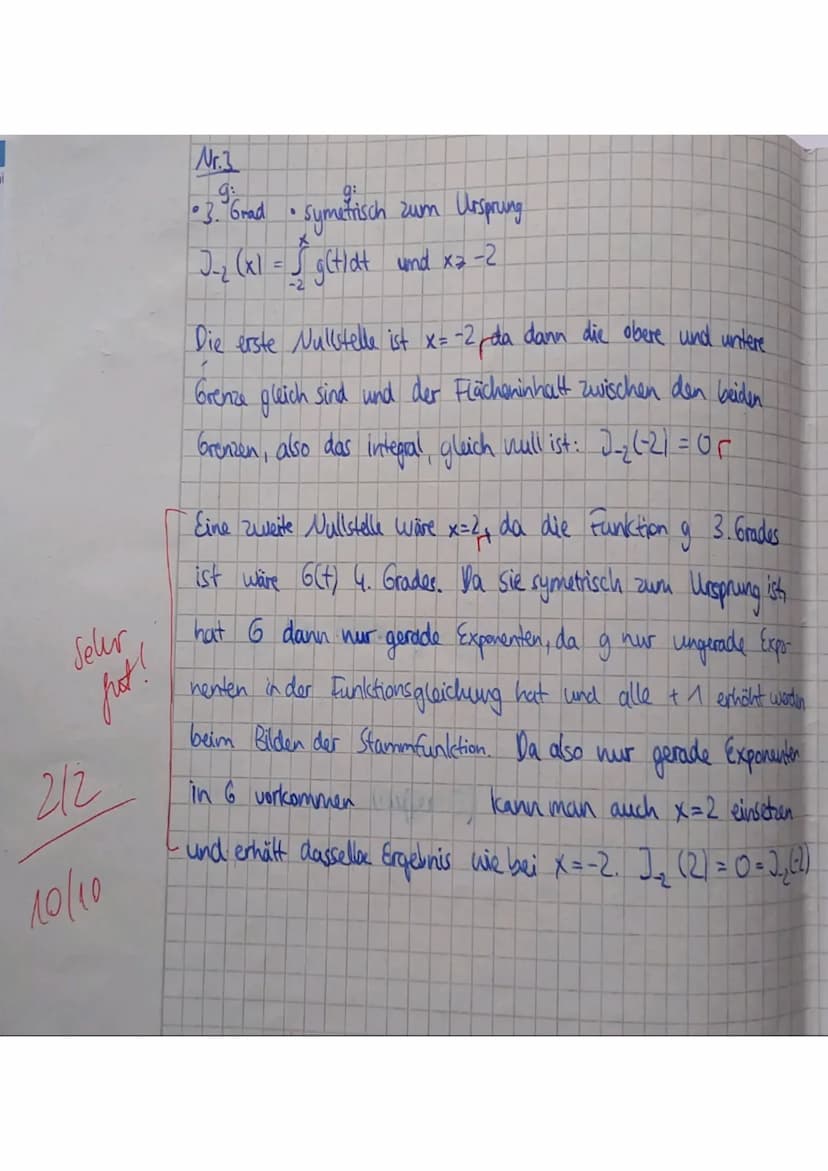 Nr.3
g: g:
• 3. Grad • symetrisch zum Ursprung
J₋₂(x) = ∫₋₂ˣ g(t)dt und x ≥ -2
Die erste Nullstelle ist x = -2, r da dann die obere und untere
Grenze gleich sind und der Flächeninhalt zwischen den beiden
Grenzen, also das integral, gleich null ist: J₋₂(-2) = 0 r
Eine zweite Nullstelle wäre x=2, r da die Funktion g 3. Grades
ist wäre G(t) 4. Grades. Da sie symetrisch zum Ursprung ist,
hat G dann nur gerade Exponenten, da g nur ungerade Expo-
nenten in der Funktionsgleichung hat und alle +1 erhöht werden
beim Bilden der Stammfunktion. Da also nur gerade Exponenten
in G vorkommen , kann man auch x=2 einsetzen
und erhält dasselbe Ergebnis wie bei x=-2. J₋₂(2) = 0 = J₋₂(-2)
Sehr
gut!
2/2
10/10